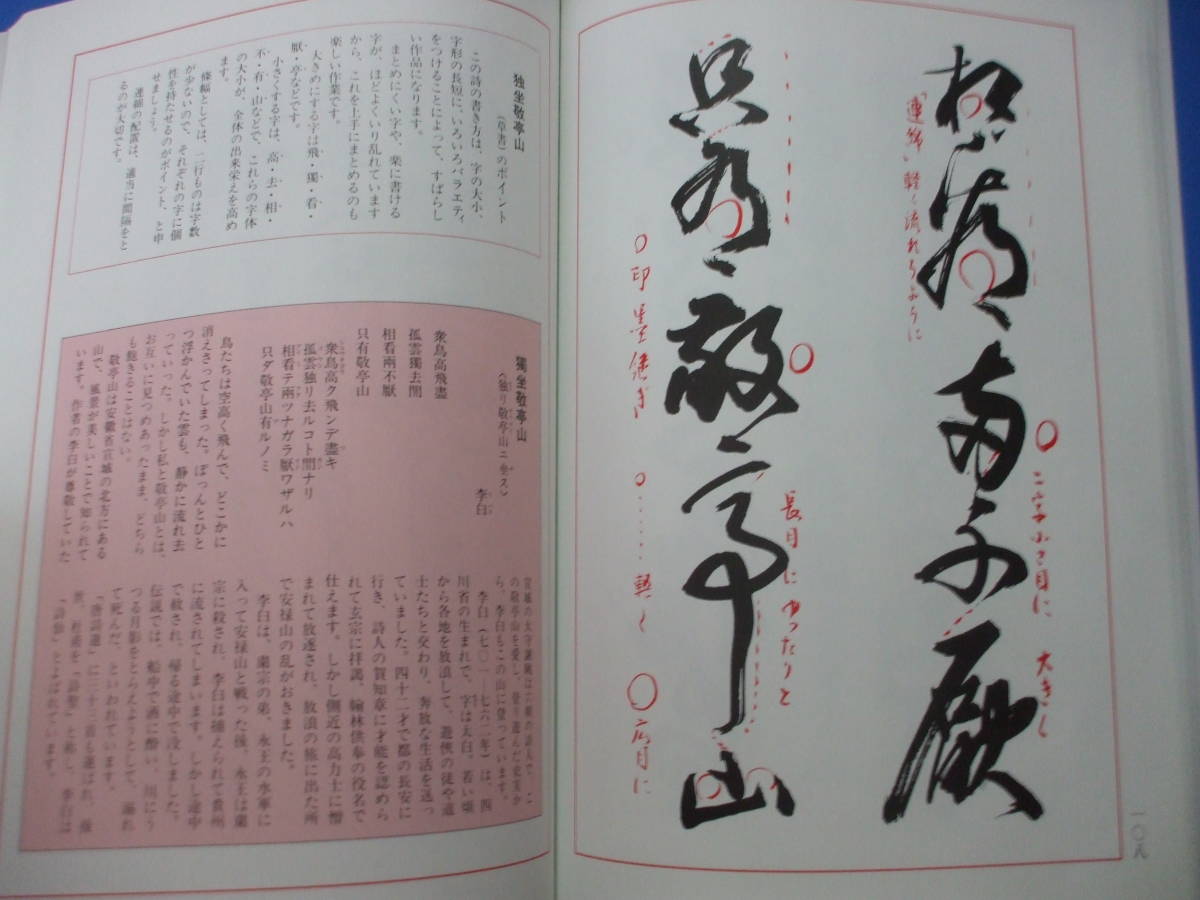 相看両不厭
只有敬亭山
「連綿」軽く流れるように
二字小さ目に
大きく
長目にゆったりと
軽く
広目に
一〇八
独坐敬亭山
(草書)のポイント
この詩の書き方は、字の大小、
字形の長短に、いろいろバラエティ
をつけることによって、すばらし
い作品になります。
まとめにくい字や、楽に書ける
字が、ほどよくいり乱れています
から、これを上手にまとめるのも
楽しい作業です。
大きめにする字は飛・獨・看・
厭・亭などです。
小さくする字は、高・去・相・
不・有・山などで、これらの字体
の大小が、全体の出来栄えを高め
ます。
條幅としては、二行ものは字数
が少ないので、それぞれの字に個
性を持たせるのがポイント、と申
せましょう。
連綿の配置は、適当に間隔をと
るのが大切です。
獨坐敬亭山
〈独リ敬亭山ニ坐ス〉
李白
衆鳥高飛盡
孤雲獨去閒
相看兩不厭
只有敬亭山
衆鳥高ク飛ンデ盡キ
孤雲独リ去ルコト閒ナリ
相看テ兩ツナガラ厭ワザルハ
只ダ敬亭山有ルノミ
鳥たちは空高く飛んで、どこかに
消えさってしまった。ぽっんとひと
つ浮かんでいた雲も、静かに流れ去
っていった。しかし私と敬亭山とは、
お互いに見つめあったまま、どちら
も飽きることはない。
敬亭山は安徽省宣城の北方にある
山で、風景が美しいことで知られて
います。作者の李白が尊敬していた
の敬亭山を愛し、
ら、李白もこの山に登っています。
李白(七〇一―七六二年)は、四
川省の生まれで、字は太白。若い頃
から各地を放浪して、遊侠の徒や道
士たちと交わり、奔放な生活を送っ
ていました。四十二才で都の長安に
行き、詩人の賀知章に才能を認めら
れて玄宗に拝謁、翰林供奉の役名で
仕えます。しかし側近の高力士に憎
まれて放逐され、放浪の旅に出た所
で安禄山の乱がおきました。
李白は、粛宗の弟、永王の水軍に
入って安禄山と戦った後、永王は粛
宗に殺され、李白は捕えられて貴州
に流されてしまいます。しかし途中
で赦され、帰る途中で没しました。
伝説では、船中で酒に酔い、川にう
つる月影をとらえようとして、溺れ
て死んだ、といわれています。
「唐詩選」に三十三首も選ばれ、
杜甫を「詩聖」と称し、李白は
「詩仙」とよばれています。